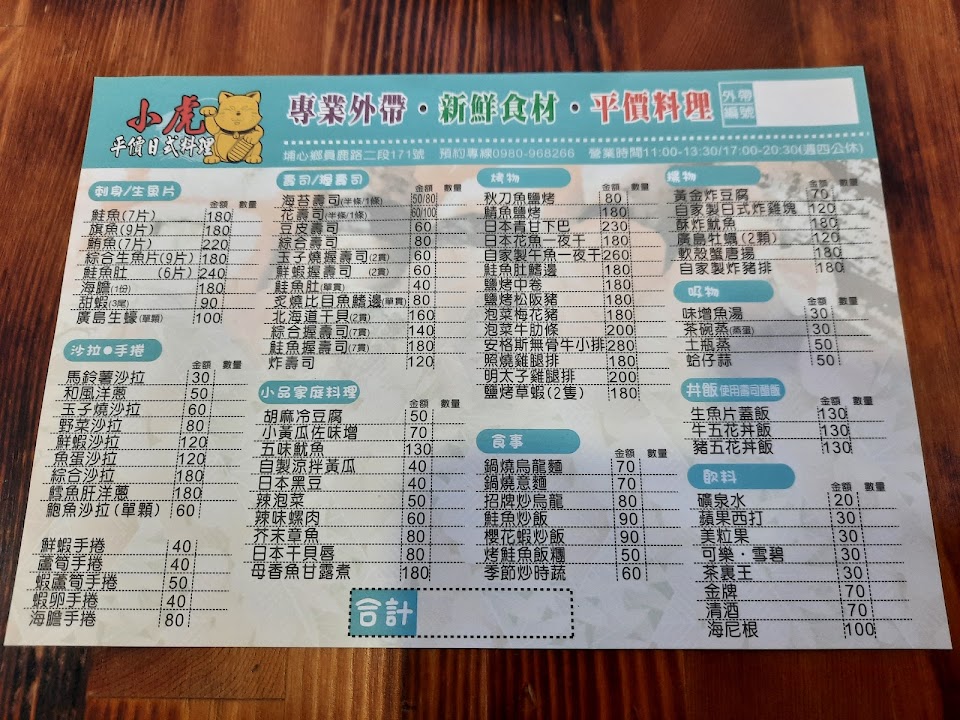 小虎
平價日式料理
專業外帶・新鮮食材・平價料理
外帶編號
埔心鄉員鹿路二段171號 預約專線0980-968266 營業時間11:00-13:30/17:00-20:30(週四公休)
刺身/生魚片
金額 數量
鮭魚(7片) 180
旗魚(9片) 180
鮪魚(7片) 220
綜合生魚片(9片) 180
鮭魚肚 (6片) 240
海膽(1份) 180
甜蝦(3尾) 90
廣島生蠔(單顆) 100
沙拉●手捲
金額 數量
馬鈴薯沙拉 30
和風洋蔥 50
玉子燒沙拉 60
野菜沙拉 80
鮮蝦沙拉 120
魚蛋沙拉 120
綜合沙拉 180
鱈魚肝洋蔥 180
鮑魚沙拉(單顆) 60
鮮蝦手捲 40
蘆筍手捲 40
蝦蘆筍手捲 50
蝦卵手捲 40
海膽手捲 80
壽司/握壽司
金額 數量
海苔壽司(半條/1條) 50/80
花壽司(半條/1條) 60/100
豆皮壽司 60
綜合壽司 80
玉子燒握壽司(2貫) 60
鮮蝦握壽司(2貫) 60
鮭魚肚(單貫) 40
炙燒比目魚鰭邊(單貫) 80
北海道干貝(2貫) 160
綜合握壽司(7貫) 140
鮭魚握壽司(7貫) 180
炸壽司 120
小品家庭料理
金額 數量
胡麻冷豆腐 50
小黃瓜佐味增 70
五味魷魚 130
自製涼拌黃瓜 40
日本黑豆 40
辣泡菜 50
辣味螺肉 60
芥末章魚 80
日本干貝唇 80
母香魚甘露煮 180
合計
烤物
金額 數量
秋刀魚鹽烤 80
鯖魚鹽烤 180
日本青甘下巴 230
日本花魚一夜干 180
自家製午魚一夜干 260
鮭魚肚鰭邊 180
鹽烤中卷 180
鹽烤松阪豬 180
泡菜梅花豬 180
泡菜牛肋條 200
安格斯無骨牛小排 280
照燒雞腿排 180
明太子雞腿排 200
鹽烤草蝦(2隻) 180
食事
金額 數量
鍋燒烏龍麵 70
鍋燒意麵 70
招牌炒烏龍 80
鮭魚炒飯 90
櫻花蝦炒飯 90
烤鮭魚飯糰 50
季節炒時蔬 60
揚物
金額 數量
黃金炸豆腐 70
自家製日式炸雞塊 120
酥炸魷魚 180
廣島牡蠣(2顆) 120
軟殼蟹唐揚 180
自家製炸豬排 180
吸物
金額 數量
味增魚湯 30
茶碗蒸(蒸蛋) 30
土瓶蒸 50
蛤仔蒜 50
丼飯使用壽司醋飯
金額 數量
生魚片蓋飯 130
牛五花丼飯 130
豬五花丼飯 130
飲料
金額 數量
礦泉水 20
蘋果西打 30
美粒果 30
可樂・雪碧 30
茶裏王 30
金牌 70
清酒 70
海尼根 100